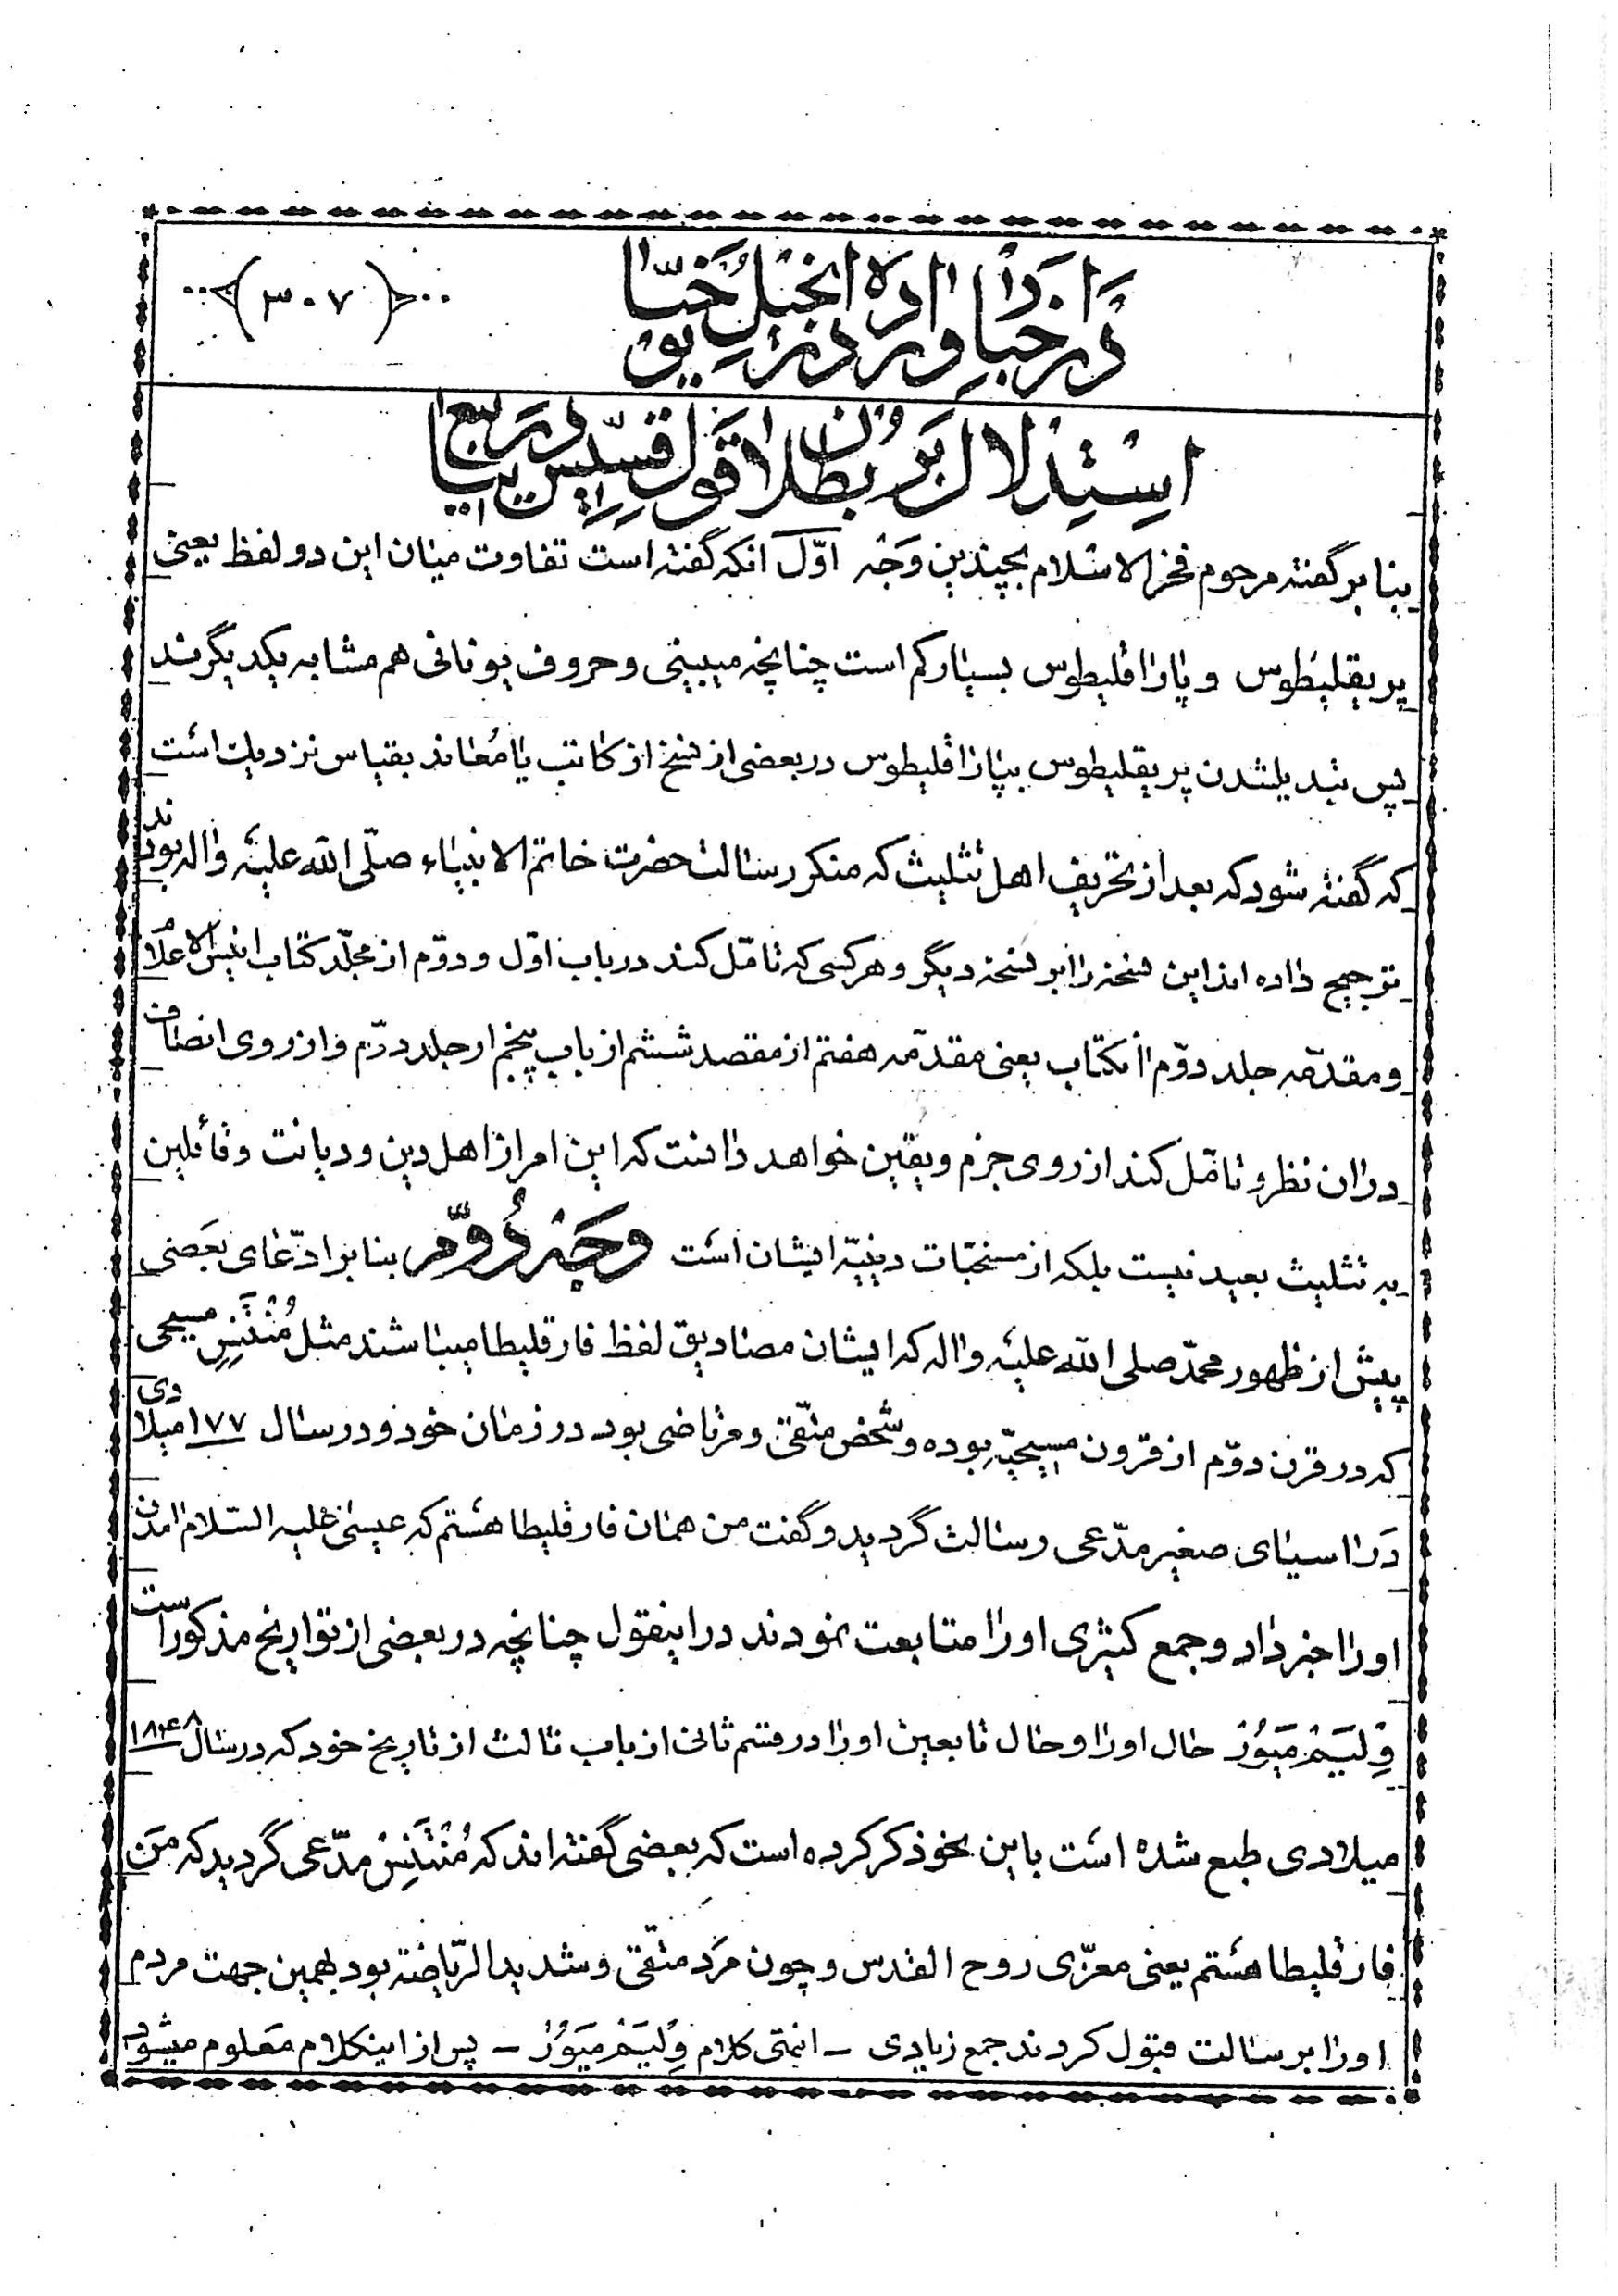 در اخبار وارده در انجیل یوحنا
(۳۰۷)
استدلال بر بطلان قول قسیسین
بنابر گفته مرحوم فخر الاسلام بچندین وجه اوّل انکه گفته است تفاوت میان این دو لفظ یعنی
پریقلیطوس و پاراقلیطوس بسیار کم است چنانچه میبینی و حروف یونانی هم مشابه یکدیگرند
پس تبدیلشدن پریقلیطوس بپاراقلیطوس در بعضی از نسخ از کاتب یا معاند بقیاس نزدیک است
که گفته شود که بعد از تحریف اهل تثلیث که منکر رسالت حضرت خاتم الانبیاء صلّی الله علیه واله بودند
ترجیح داده اند این نسخه را بر نسخه دیگر و هر کسی که تامّل کند در باب اوّل و دوّم از مجلّد کتاب انیس الاعلام
و مقدّمه جلد دوّم انکتاب یعنی مقدّمه هفتم از مقصد ششم از باب پنجم از جلد دوّم و از روی انصاف
در ان نظر و تامّل کند از روی جزم و یقین خواهد دانست که این امر از اهل دین و دیانت و قائلین
به تثلیث بعید نیست بلکه از مستحبّات دینیّه ایشان است وجه دُوّم بنابر ادّعای بعضی
پیش از ظهور محمّد صلی الله علیه واله که ایشان مصادیق لفظ فارقلیطا میباشند مثل مُنْتَنِسِ مسیحی
که در قرن دوّم از قرون مسیحیّه بوده و شخص متّقی و مرتاضی بود در زمان خود و در سال ۱۷۷ میلادی
در اسیای صغیر مدّعی رسالت گردید و گفت من همان فارقلیطا هستم که عیسی علیه السّلام امدن
او را خبر داد و جمع کثیری او را متابعت نمودند در اینقول چنانچه در بعضی از تواریخ مذکور است
وِلیَمْ مَیُوْر حال او را و حال تابعین او را در قسم ثانی از باب ثالث از تاریخ خود که در سال ۱۸۴۸
میلادی طبع شده است باین نحو ذکر کرده است که بعضی گفته اند که مُنْتَنِسْ مدّعی گردید که من
فارقلیطا هستم یعنی معزّی روح القدس و چون مرد متّقی و شدید الرّیاضة بود بهمین جهت مردم
او را برسالت قبول کردند جمع زیادی - انتهی کلام وِلیَمْ مَیُوْر - پس از اینکلام معلوم میشود